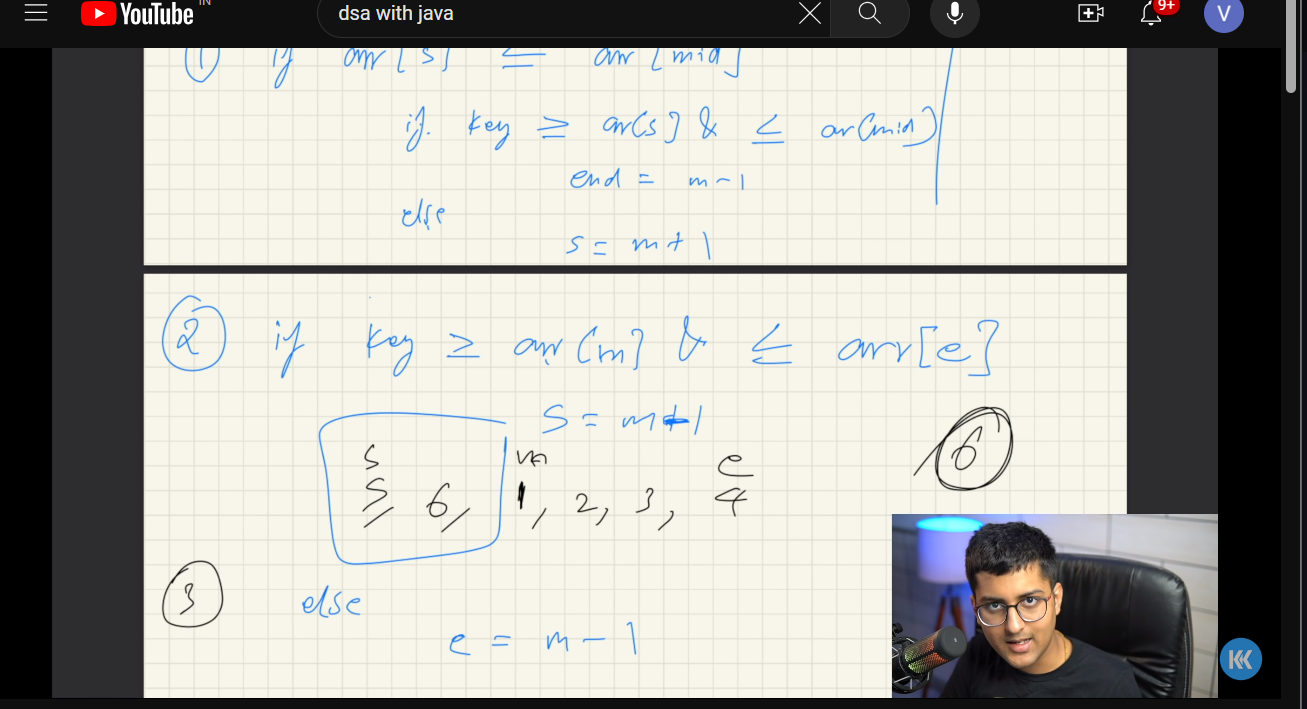 IN
YouTube
dsa with java
9+
V
① if arr[s] ≤ arr[mid]
if key ≥ ar[s] & ≤ ar[mid]
end = m-1
else
s = m+1
② if key ≥ arr[m] & ≤ arr[e]
s = m+1
s m e
5, 6, 1, 2, 3, 4
6
③ else
e = m-1